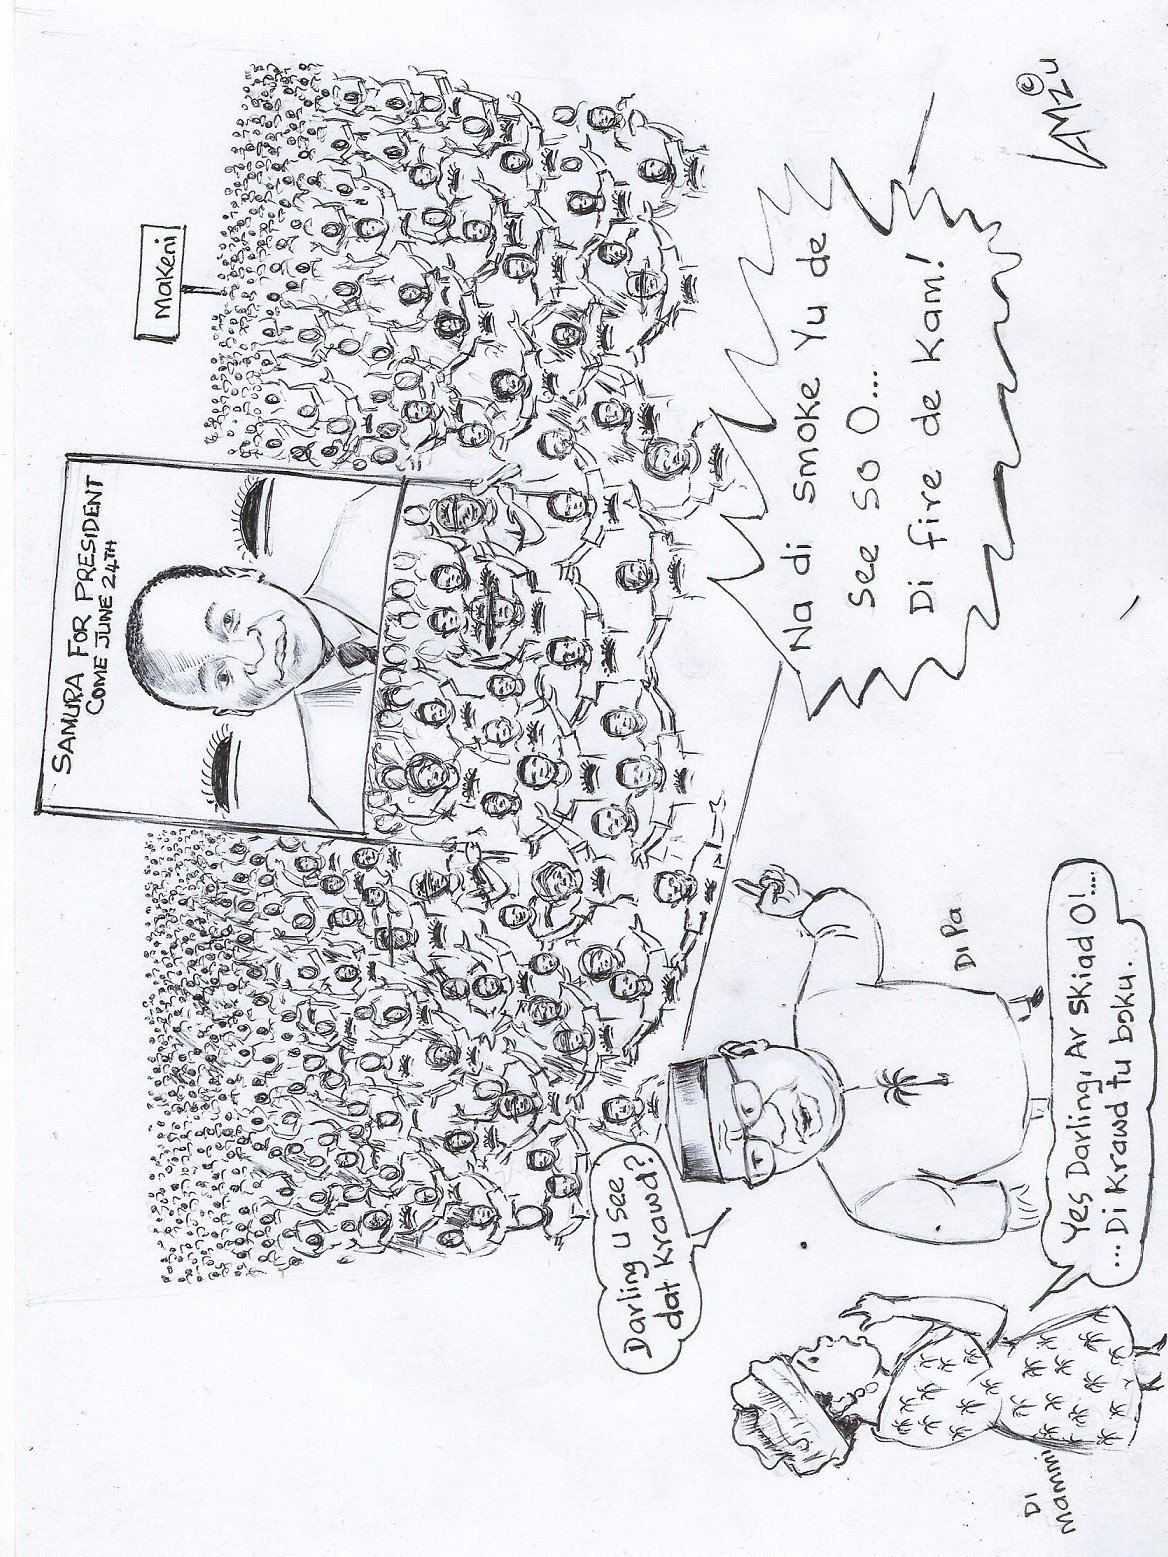 SAMURA FOR PRESIDENT
COME JUNE 24TH
Makeni
Darling u see
dat Krawd?
Na di smoke Yu de
See so O...
Di fire de Kam!
Yes Darling, Ar skiad O!....
...Di Krawd tu bɔku.
Di Pa
Di
Mammi
© AMZU